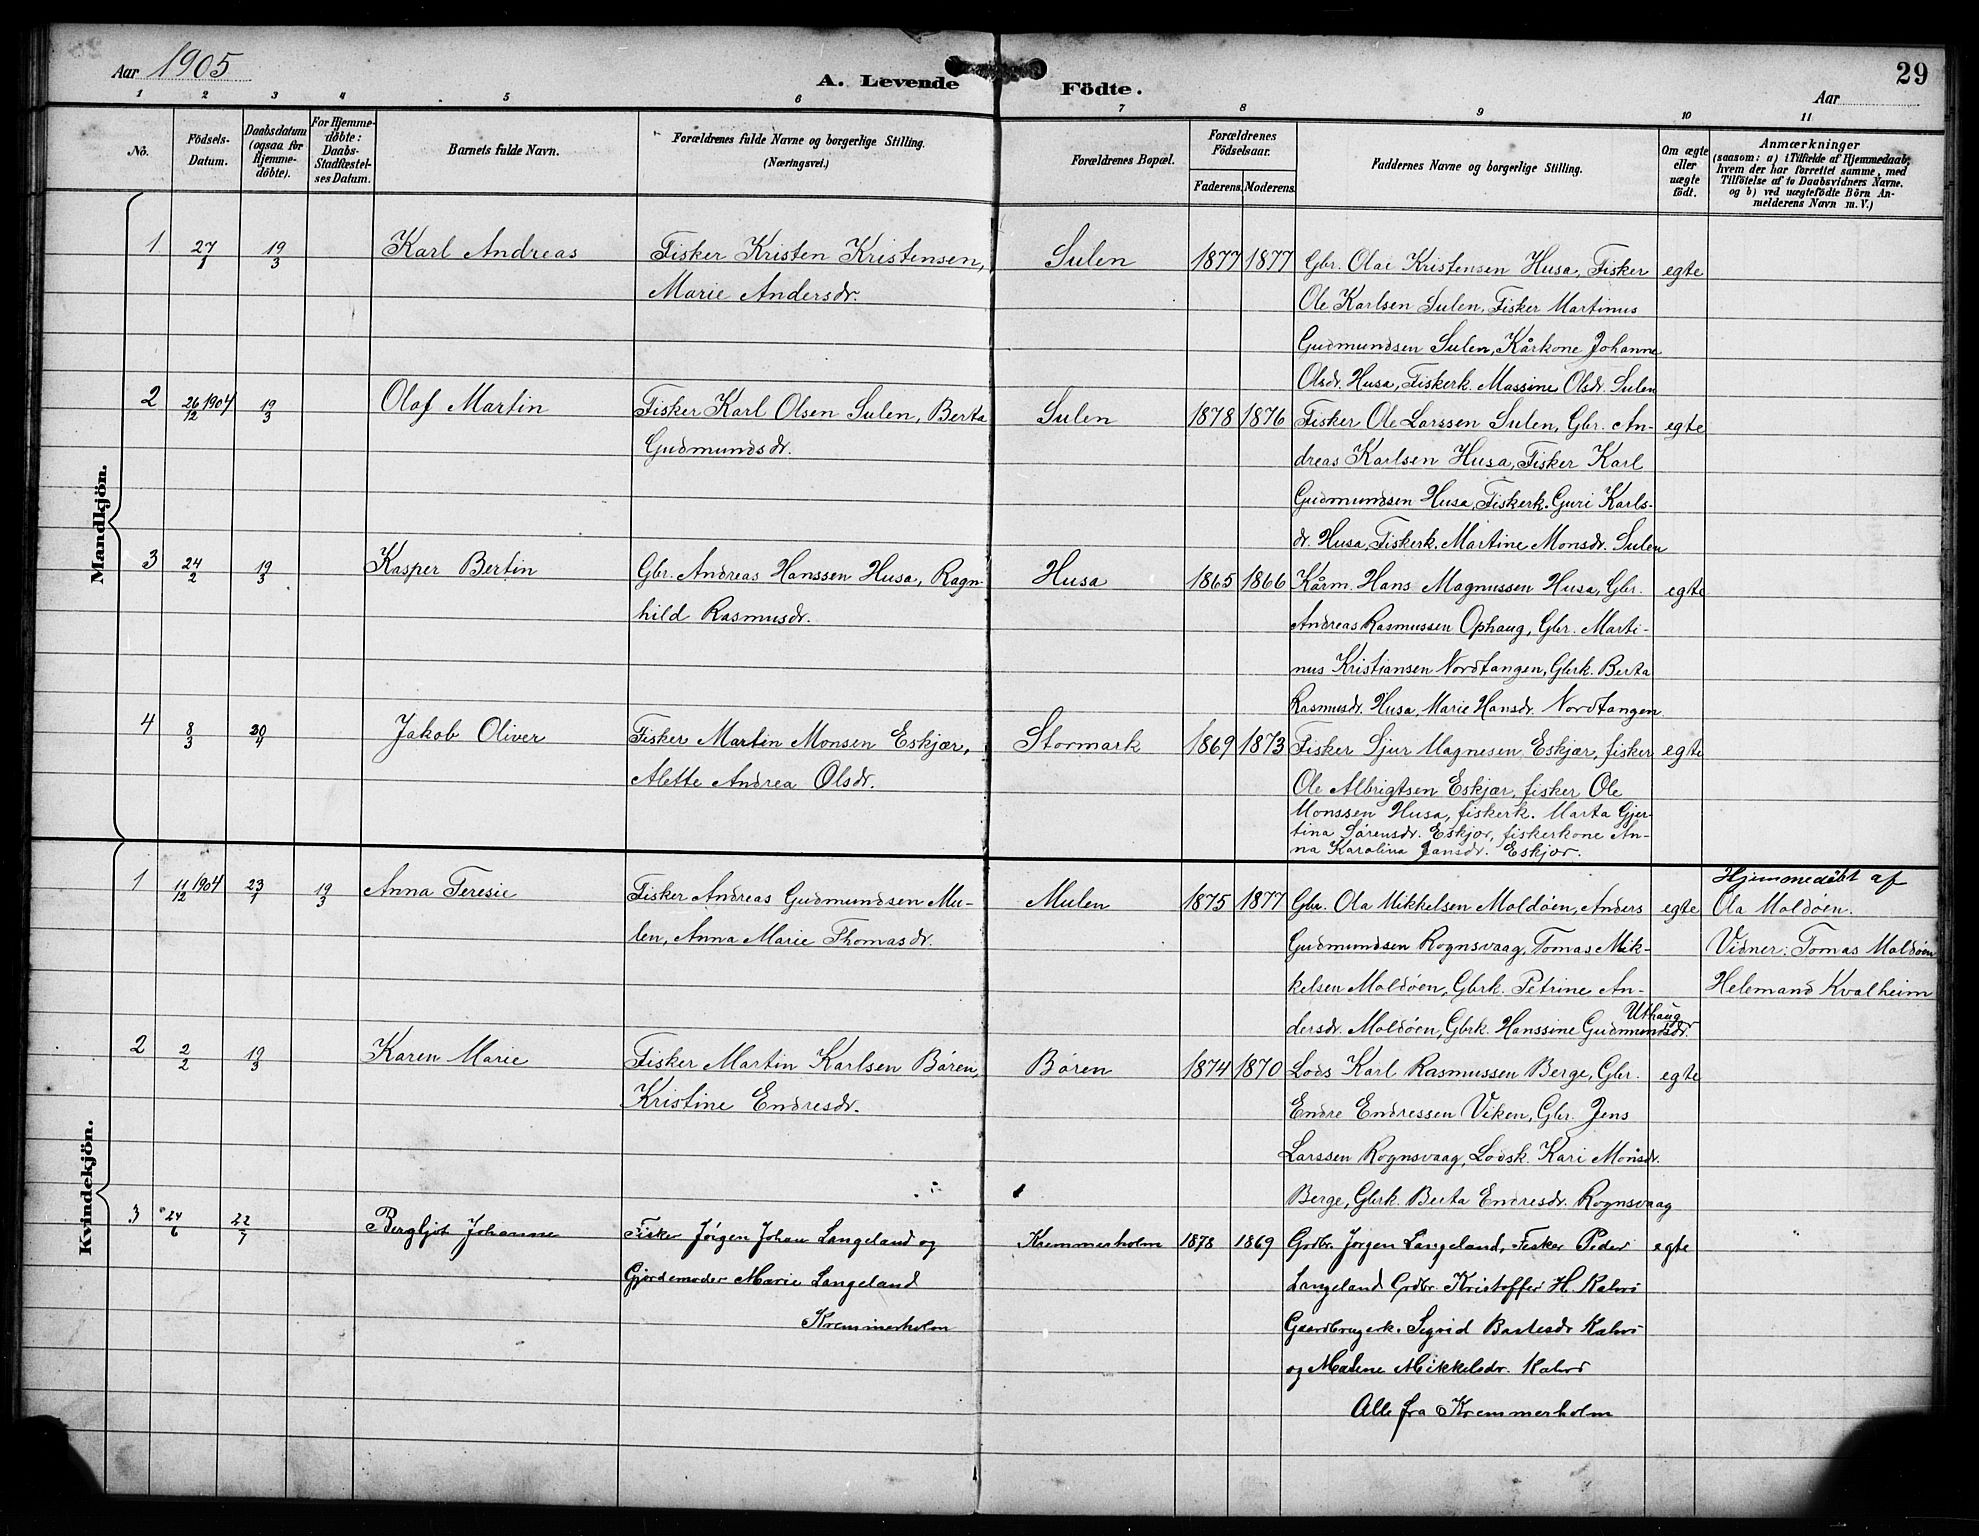 Aar 1905
A. Levende Födte.
29
Aar
1 2 3 4 5 6 7 8 9 10 11
No.
Födsels-Datum.
Daabsdatum (ogsaa for Hjemmedöbte).
For Hjemmedöbte: Daabs-Stadfæstelses Datum.
Barnets fulde Navn.
Forældrenes fulde Navne og borgerlige Stilling. (Næringsvei.)
Forældrenes Bopæl.
Forældrenes Födselsaar.
Faderens. Moderens.
Faddernes Navne og borgerlige Stilling.
Om ægte eller uægte födt.
Anmærkninger
(saasom: a) i Tilfælde af Hjemmedaab, hvem der har forrettet samme, med Tilföielse af to Daabsvidners Navne. og b) ved uægtefödte Börn Anmelderens Navn m. V.)
Mandkjön.
1 27/1 19/3 Karl Andreas Fisker Kristen Kristensen, Sulen 1877 1877 Gbr. Olai Kristensen Husa, Fisker egte
Marie Andersdr. Ole Karlsen Sulen, Fisker Martinus
Gudmundsen Sulen, Kårkone Johanne
Olsdr. Husa, Fiskerk. Massine Olsdr. Sulen
2 26/12 1904 19/3 Olaf Martin Fisker Karl Olsen Sulen, Berta Sulen 1878 1876 Fisker Ole Larssen Sulen, Gbr. An- egte
Gudmundsdr. dreas Karlsen Husa, Fisker Karl
Gudmundsen Husa, Fiskerk. Guri Karls-
dr. Husa, Fiskerk. Martine Monsdr. Sulen
3 24/2 19/3 Kasper Bertin Gbr. Andreas Hanssen Husa, Ragn- Husa 1865 1866 Kårm. Hans Magnussen Husa, Gbr. egte
hild Rasmusdr. Andreas Rasmussen Ophaug, Gbr. Marti-
nus Kristiansen Nordtangen, Gbrk. Berta
Rasmusdr. Husa, Marie Hansdr. Nordtangen
4 8/3 30/4 Jakob Oliver Fisker Martin Monsen Eskjær, Stormark 1869 1873 Fisker Sjur Magnesen Eskjær, fisker egte
Alette Andrea Olsdr. Ole Albrigtsen Eskjær, fisker Ole
Monssen Husa, fiskerk. Marta Gjer-
tina Sørensdr. Eskjær, fiskerkone An-
na Karolina Jansdr. Eskjær.
Kvindekjön.
1 11/12 1904 23/1 19/3 Anna Teresie Fisker Andreas Gudmundsen Mu- Mulen 1875 1877 Gbr. Ola Mikkelsen Moldöen, Anders egte Hjemmedöbt af
Ola Moldöen.
len, Anna Marie Thomasdr. Gudmundsen Rognsvaag, Tomas Mik- Vidner: Tomas Moldöen
kelsen Moldöen, Gbrk. Petrine An- Helemand Kvalheim
Uthaug
dersdr. Moldöen, Gbrk. Hanssine Gudmundsdr.
2 2/2 19/3 Karen Marie Fisker Martin Karlsen Bören, Bören 1874 1870 Lods Karl Rasmussen Berge, Gbr. egte
Kristine Endresdr. Endre Endressen Viken, Gbr. Jens
Larssen Rognsvaag, Lodsk. Kari Månsdr.
Berge, Gbrk. Berta Endresdr. Rognsvaag
3 24/6 22/7 Bergljot Johanne Fisker Jörgen Johan Langeland og Kremmerholm 1878 1869 Grdbr. Jörgen Langeland, Fisker Peder egte
Gjordemoder Marie Langeland Langeland Grdbr. Kristoffer H. Kalvö
Kremmerholm Gaardbrugerk. Sigrid Kalvö
og Malene Mikkelsdr. Kalvö
Alle fra Kremmerholm